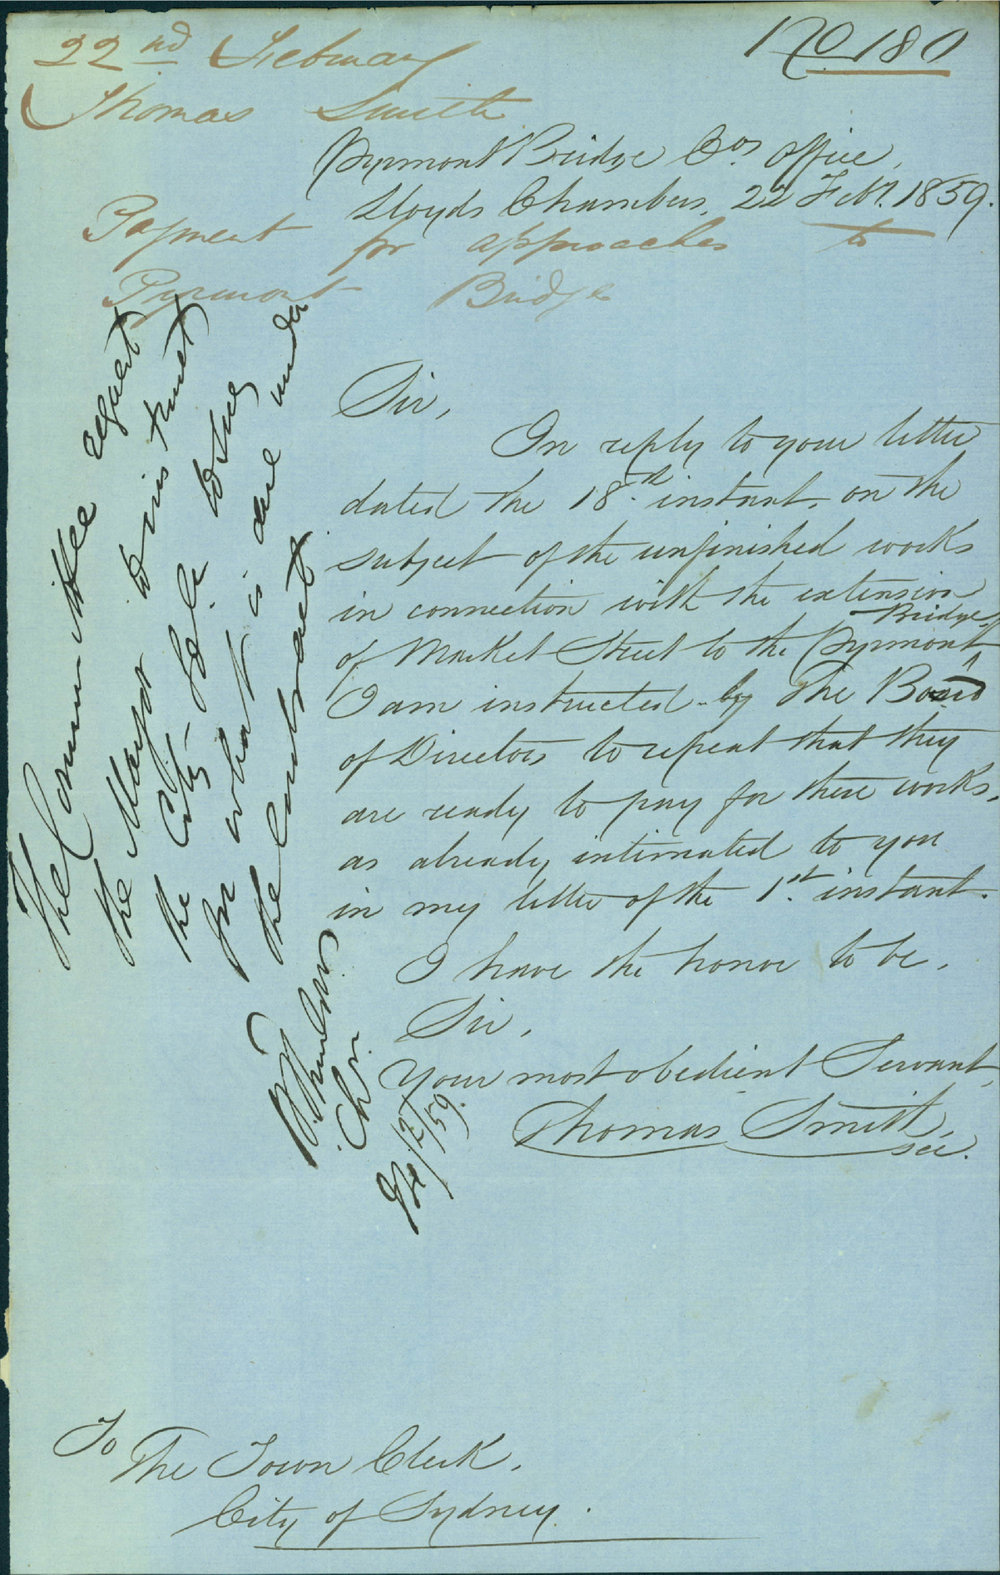 22nd February
No 180
Thomas Smith
Pyrmont Bridge Cos Office,
Lloyds Chambers, 22 Feby. 1859.
Payment for approaches to
Pyrmont Bridge
Sir,
In reply to your letter
dated the 18th instant, on the
subject of the unfinished works
in connection with the extension
of Market Street to the Pyrmont Bridge
I am instructed by The Board
of Directors to repeat that they
are ready to pay for these works,
as already intimated to you
in my letter of the 1st instant.
I have the honor to be,
Sir,
Your most obedient Servant,
Thomas Smith
Sec.
The Committee request
the Mayor to instruct
the City
for what is due under
the Contract
Chn.
/2/59.
To
The Town Clerk,
City of Sydney.